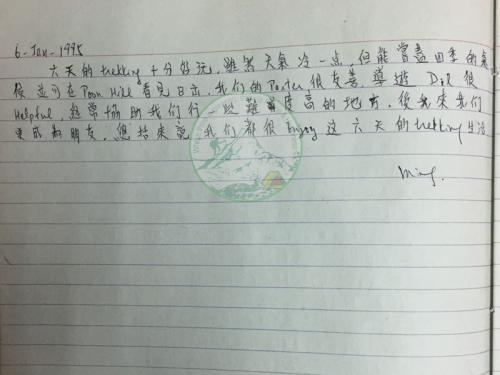 6-Jan-1995
六天的trekking十分好玩，雖然天氣冷一点，但能嘗盡四季的氣
候並可在Poon Hill看見日出，我們的Porter很友善，導遊 Dil 很
Helpful，經常協助我們行一些難度高的地方，後來我們
更成為朋友，總括來說我們都很Enjoy这六天的trekking生活
Ming.